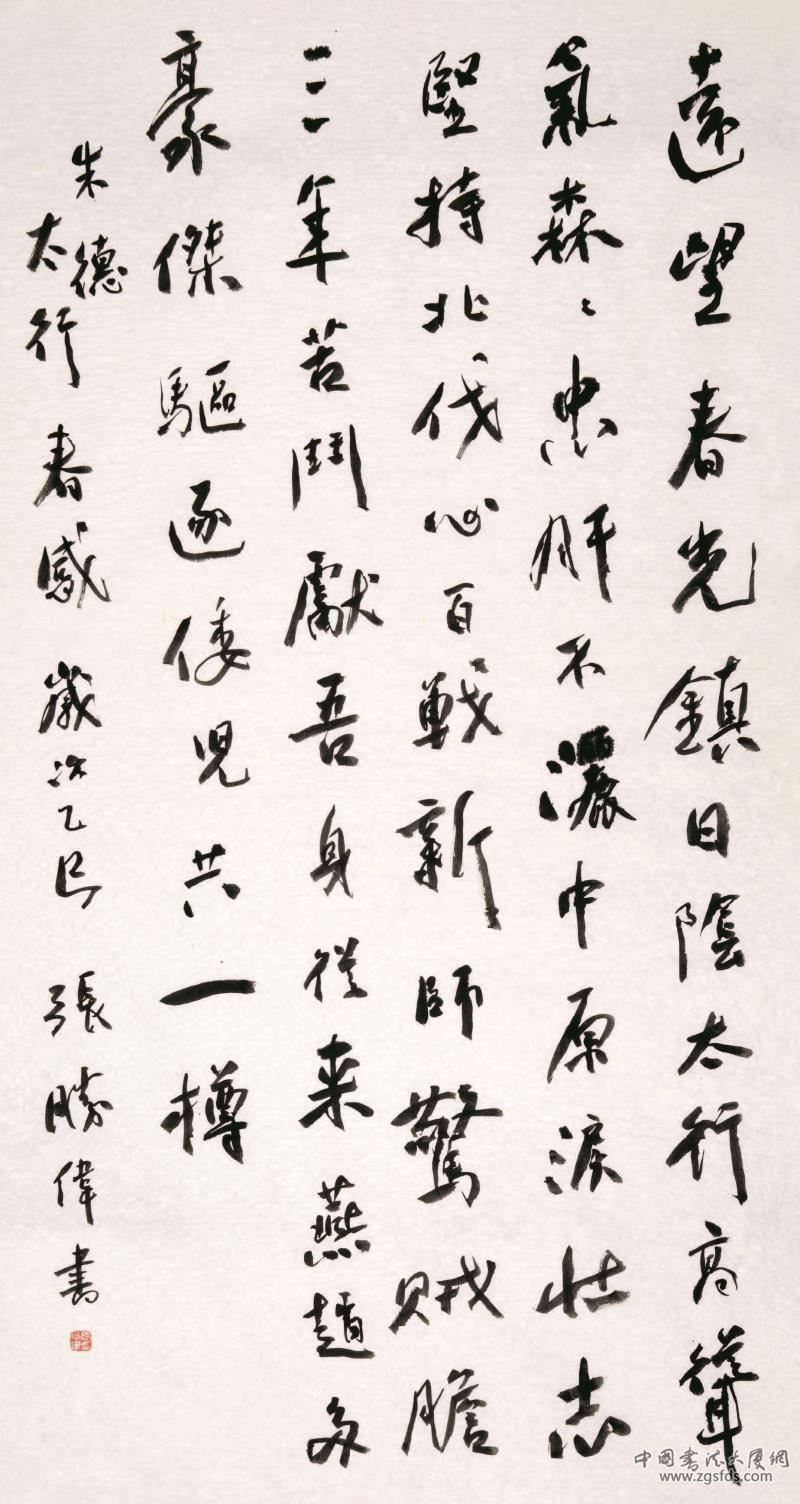 遠望春光鎮日陰太行高聳
氣森々忠肝不灑中原淚壯志
堅持北伐心百戰新師驚賊膽
三年苦鬥獻吾身從来燕趙多
豪傑驅逐倭兒共一樽
朱德
太行春感 歲次乙巳 張勝偉書
中國書法大厦網
www.zgsfds.com